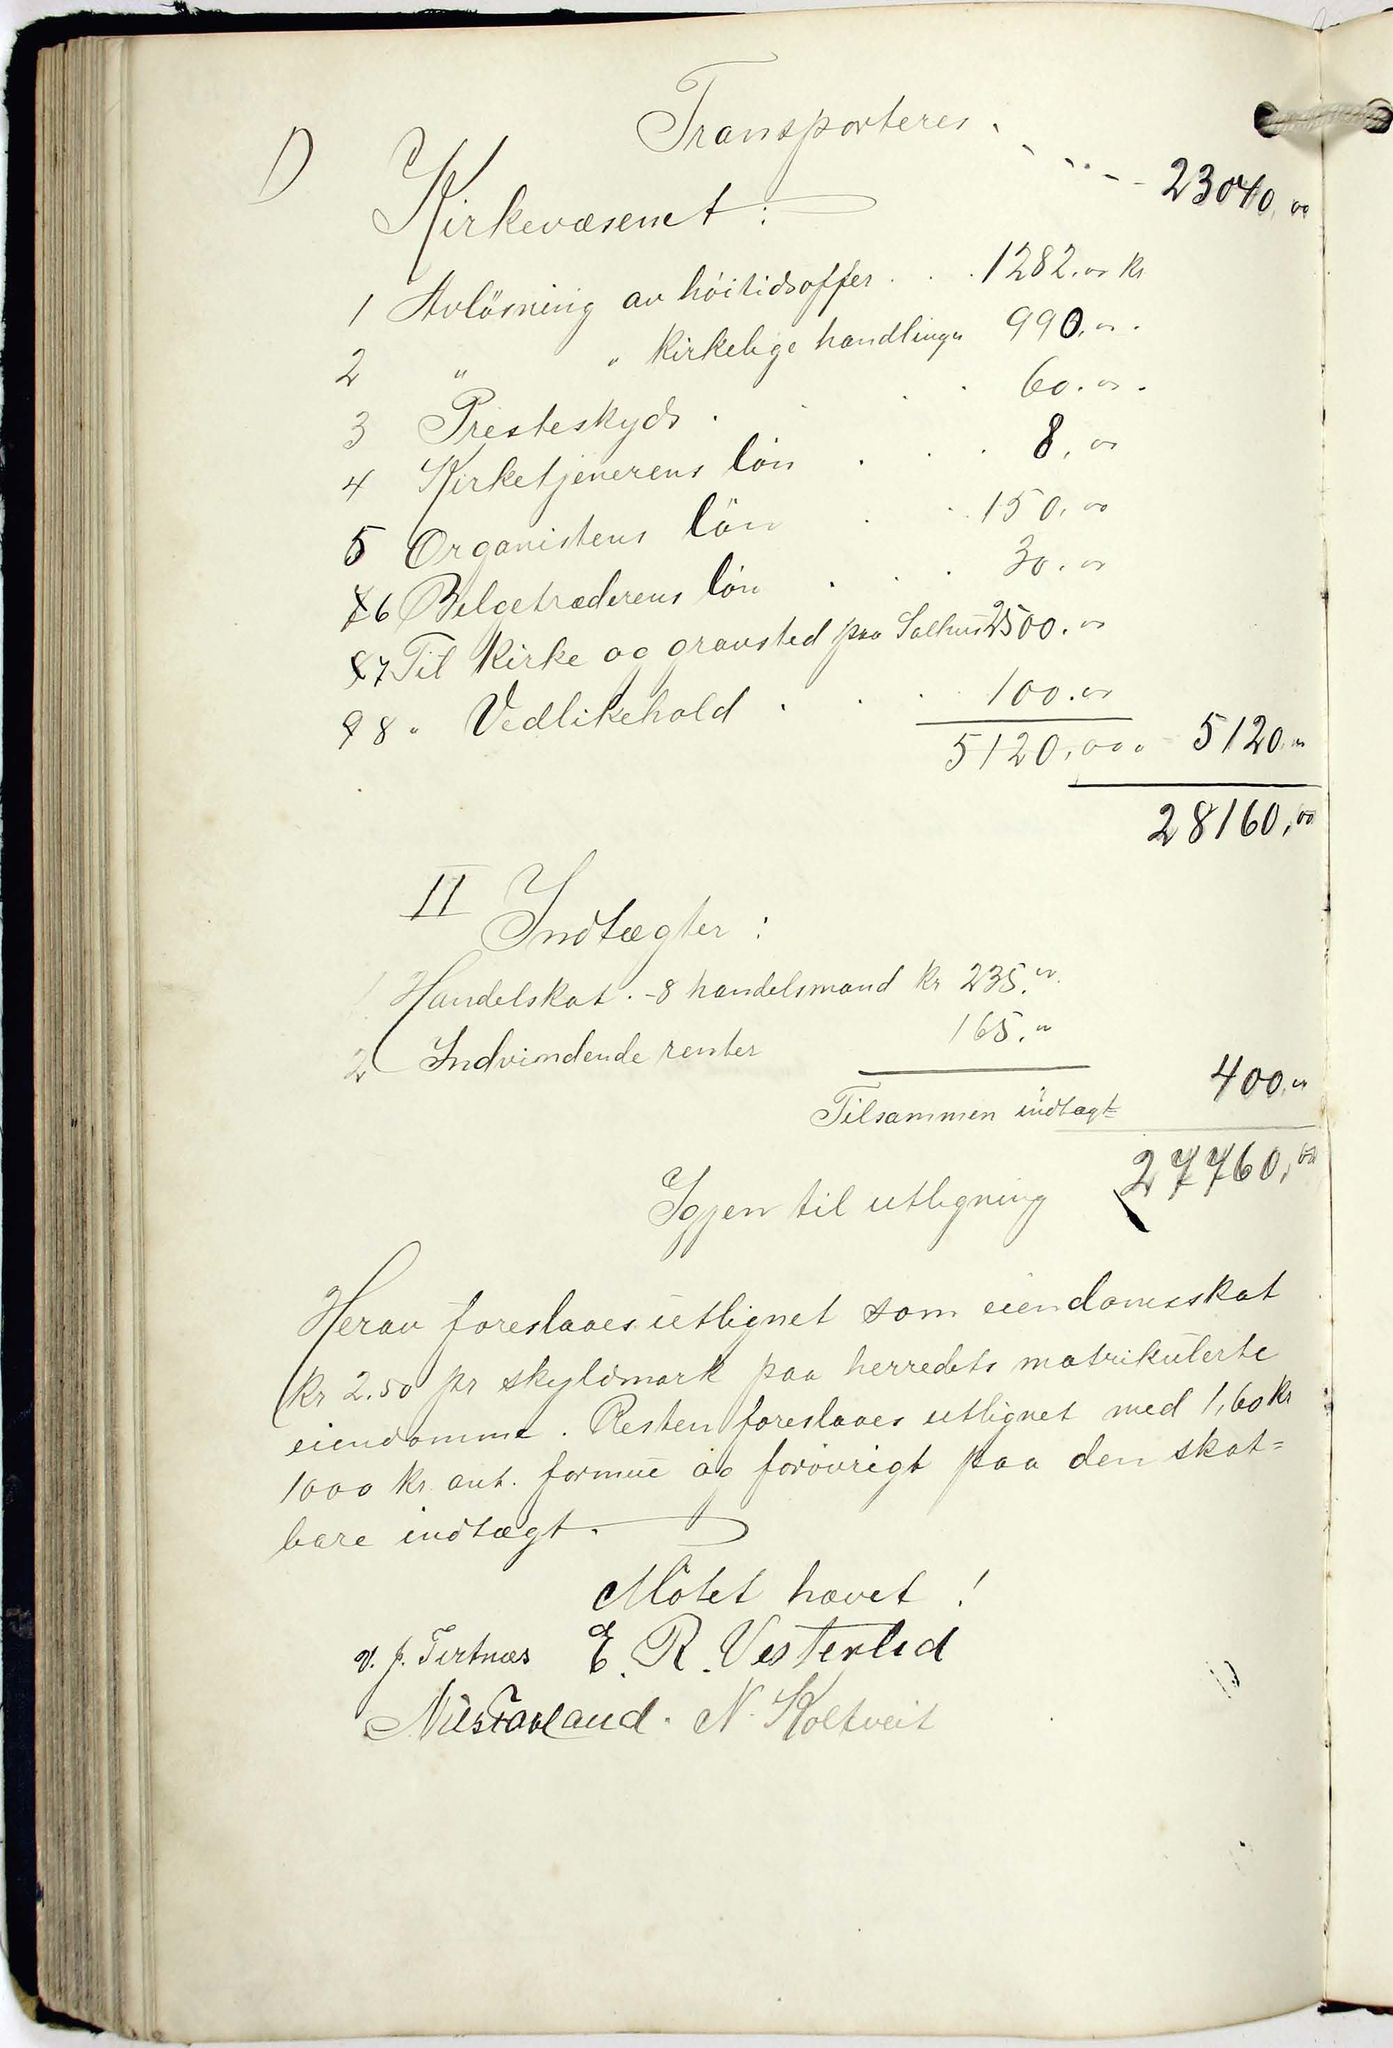 Transporteres . - - - - 23040,00
D Kirkevæsenet :
1 Avløsning av höitidsoffer . . . 1282.00 kr
2 " " kirkelige handlinger 990.00 .
3 Presteskyds . . . . 60.00 .
4 Kirketjenerens lön . . . 8,00
5 Organistens lön . . 150,00
6 Belgetræderens lön . . . 30.00
7 Til kirke og gravsted paa Salhus 2500.00
8 " Vedlikehold . . . 100.00
5120,00 5120,00
28160,00
II Indtægter :
1 Handelskat . - 8 handelsmænd kr 235.00
2 Indvindende renter 165.00
400.00
Tilsammen indtægt
27760,00
Igjen til utligning
Herav foreslaaes utlignet som eiendomsskat
kr 2.50 pr skyldmark paa herredets matrikulerte
eiendomme . Resten foreslaaes utlignet med 1,60 kr
1000 kr ant. formue og forøvrigt paa den skat=
bare indtægt .
Mötet hævet !
V. J. Tertnæs E. R. Vesterlid
Nils Favland . N. Koltveit